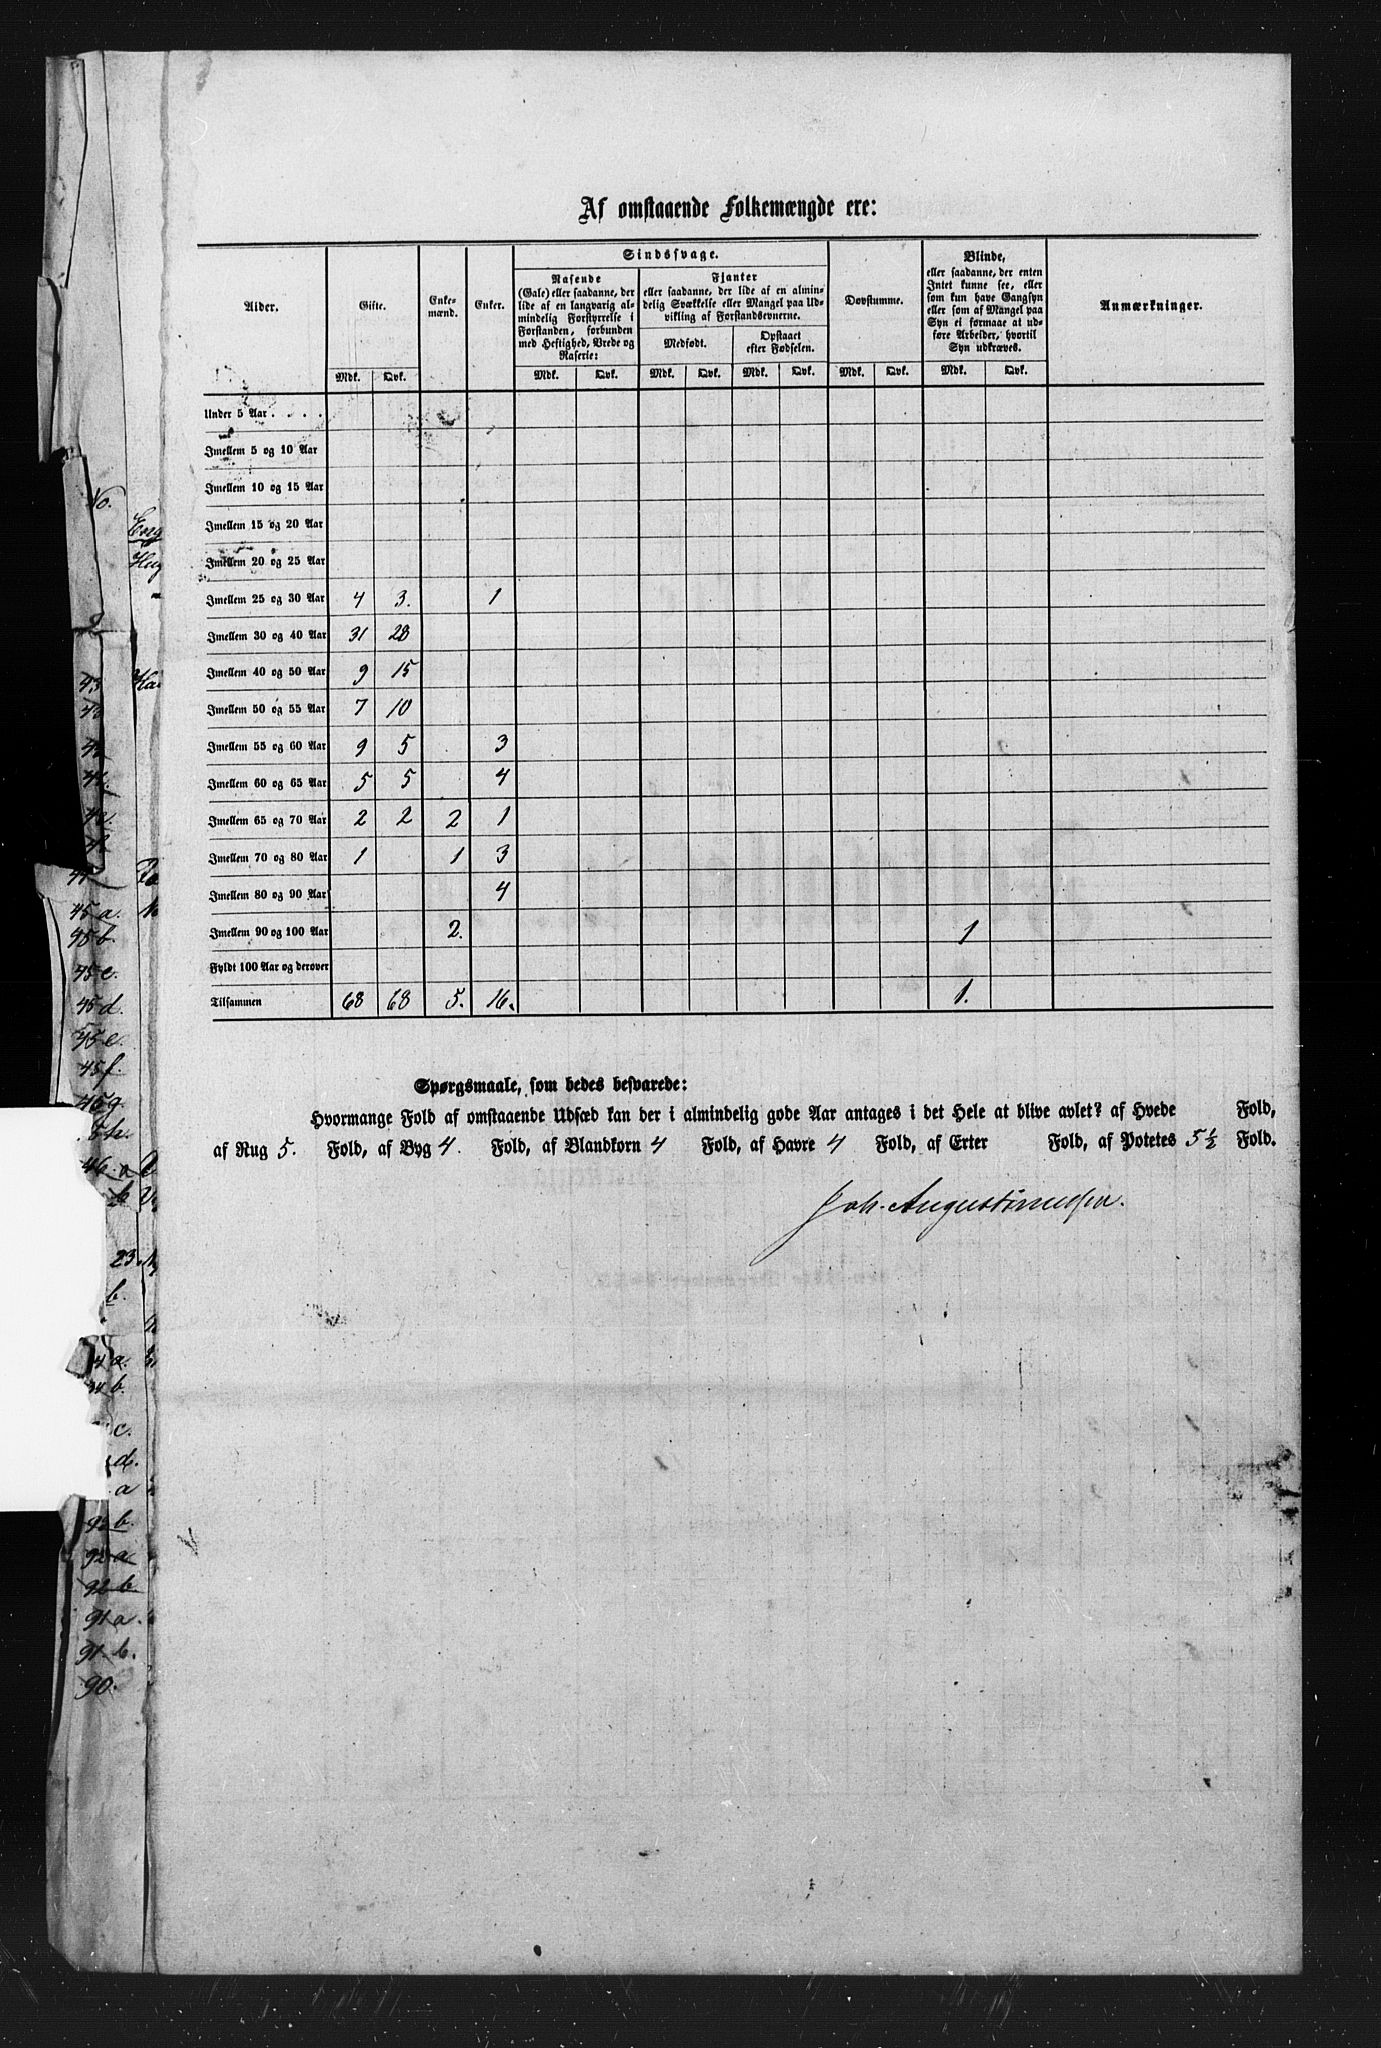 Af omstaaende Folkemængde ere:
Alder. Gifte. Enke- mænd. Enker. Sindssvage. Dovstumme. Blinde, Anmærkninger.
Rasende (Gale) eller saadanne, der lide af en langvarig al- mindelig Forstyrrelse i Forstanden, forbunden med Heftighed, Vrede og Raserie:
Fjanter eller saadanne, der lide af en almin- delig Svækkelse eller Mangel paa Ud- vikling af Forstandsevnerne.
Medfødt. Opstaaet efter Fødselen.
eller saadanne, der enten Intet kunne see, eller som kun have Gangsyn eller som af Mangel paa Syn ei formaae at ud- føre Arbeider, hvortil Syn udkræves.
Mdk. Qvk. Mdk. Qvk. Mdk. Qvk. Mdk. Qvk. Mdk. Qvk. Mdk. Qvk.
Under 5 Aar . . . .
Imellem 5 og 10 Aar
Imellem 10 og 15 Aar
Imellem 15 og 20 Aar
Imellem 20 og 25 Aar
Imellem 25 og 30 Aar 4 3. 1
Imellem 30 og 40 Aar 31 28
Imellem 40 og 50 Aar 9 15
Imellem 50 og 55 Aar 7 10
Imellem 55 og 60 Aar 9 5 3
Imellem 60 og 65 Aar 5 5 4
Imellem 65 og 70 Aar 2 2 2 1
Imellem 70 og 80 Aar 1 1 3
Imellem 80 og 90 Aar 4
Imellem 90 og 100 Aar 2. 1
Fyldt 100 Aar og derover
Tilsammen 68 68 5. 16. 1.
Spørgsmaale, som bedes besvarede:
Hvormange Fold af omstaaende Udsæd kan der i almindelig gode Aar antages i det Hele at blive avlet? af Hvede Fold,
af Rug 5. Fold, af Byg 4. Fold, af Blandkorn 4 Fold, af Havre 4 Fold, af Erter Fold, af Potetes 5½ Fold.
Joh. Augustinussen.
No.
43
45 a.
45 b.
45 c.
45 d.
45 e.
45 f.
45 g.
46. a
b
23.
b.
a.
b.
c.
d.
a
93 b.
92 a
92 b.
91 a.
91 b.
90.